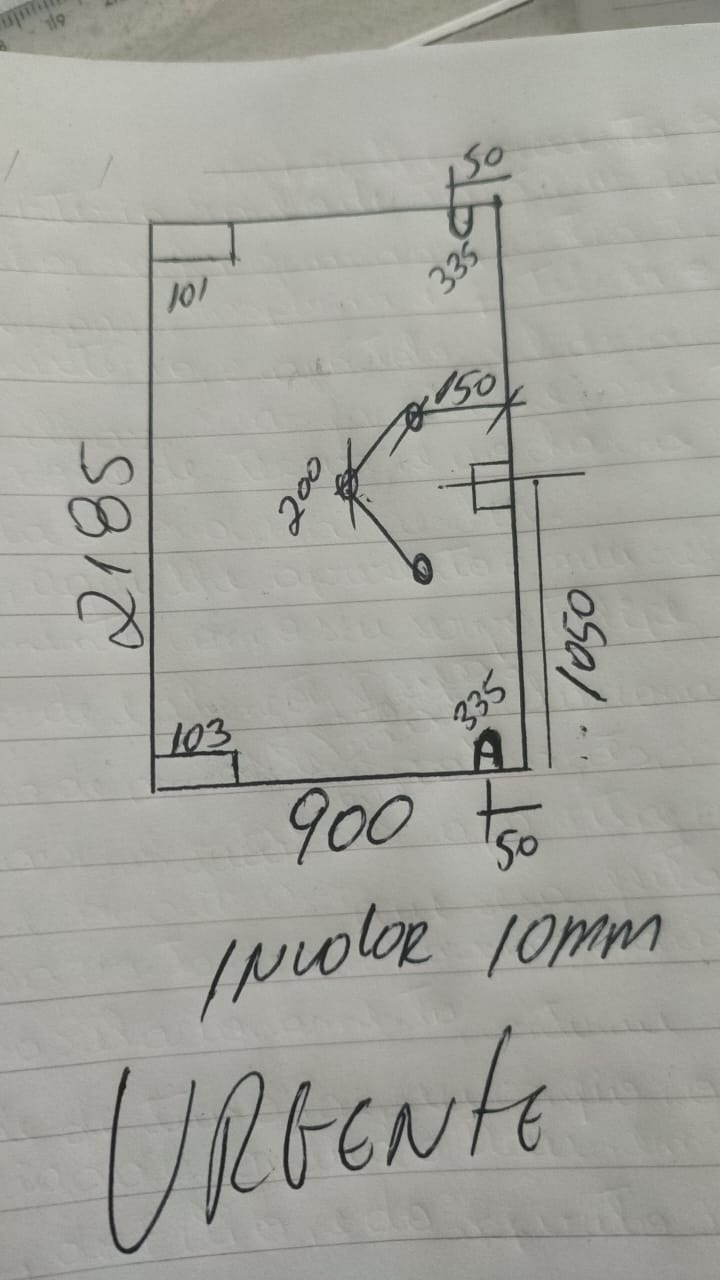 50
335
101
150
200
2185
1050
335
103
900
50
INCOLOR 10mm
URGENTE